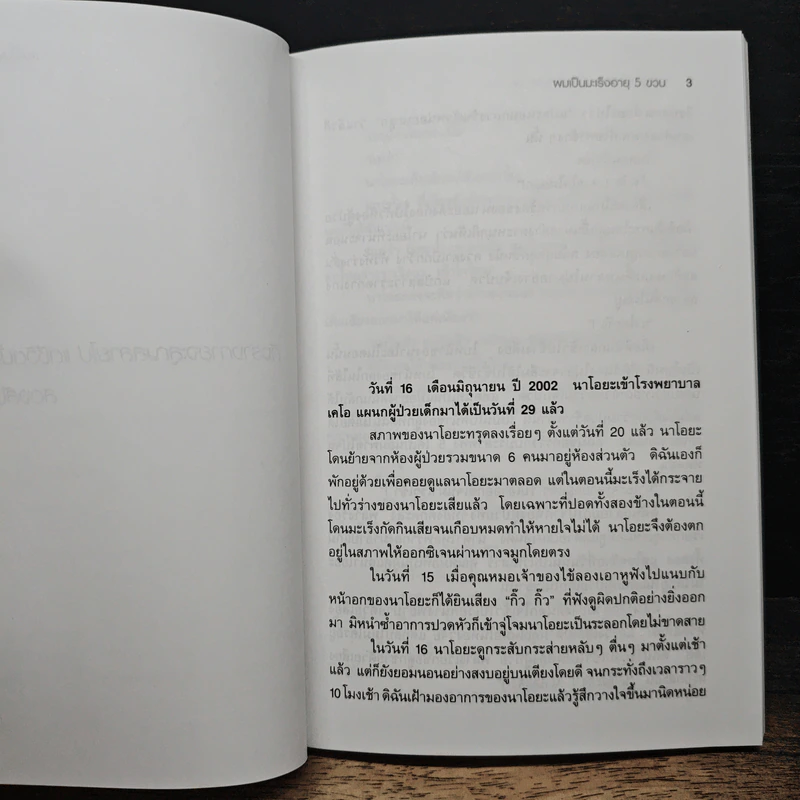 ผมเป็นมะเร็งอายุ 5 ขวบ 3
วันที่ 16 เดือนมิถุนายน ปี 2002 นาโอยะเข้าโรงพยาบาล
เคโอ แผนกผู้ป่วยเด็กมาได้เป็นวันที่ 29 แล้ว
สภาพของนาโอยะทรุดลงเรื่อยๆ ตั้งแต่วันที่ 20 แล้ว นาโอยะ
โดนย้ายจากห้องผู้ป่วยรวมขนาด 6 คนมาอยู่ห้องส่วนตัว ดิฉันเองก็
พักอยู่ด้วยเพื่อคอยดูแลนาโอยะมาตลอด แต่ในตอนนี้มะเร็งได้กระจาย
ไปทั่วร่างของนาโอยะเสียแล้ว โดยเฉพาะที่ปอดทั้งสองข้างในตอนนี้
โดนมะเร็งกัดกินเสียจนเกือบหมดทำให้หายใจไม่ได้ นาโอยะจึงต้องตก
อยู่ในสภาพให้ออกซิเจนผ่านทางจมูกโดยตรง
ในวันที่ 15 เมื่อคุณหมอเจ้าของไข้ลองเอาหูฟังไปแนบกับ
หน้าอกของนาโอยะก็ได้ยินเสียง “กิ๊ว กิ๊ว” ที่ฟังดูผิดปกติอย่างยิ่งออก
มา มิหนำซ้ำอาการปวดหัวก็เข้าจู่โจมนาโอยะเป็นระลอกโดยไม่ขาดสาย
ในวันที่ 16 นาโอยะดูกระสับกระส่ายหลับๆ ตื่นๆ มาตั้งแต่เช้า
แล้ว แต่ก็ยังยอมนอนอย่างสงบอยู่บนเตียงโดยดี จนกระทั่งถึงเวลาราวๆ
10 โมงเช้า ดิฉันเฝ้ามองอาการของนาโอยะแล้วรู้สึกวางใจขึ้นมานิดหน่อย